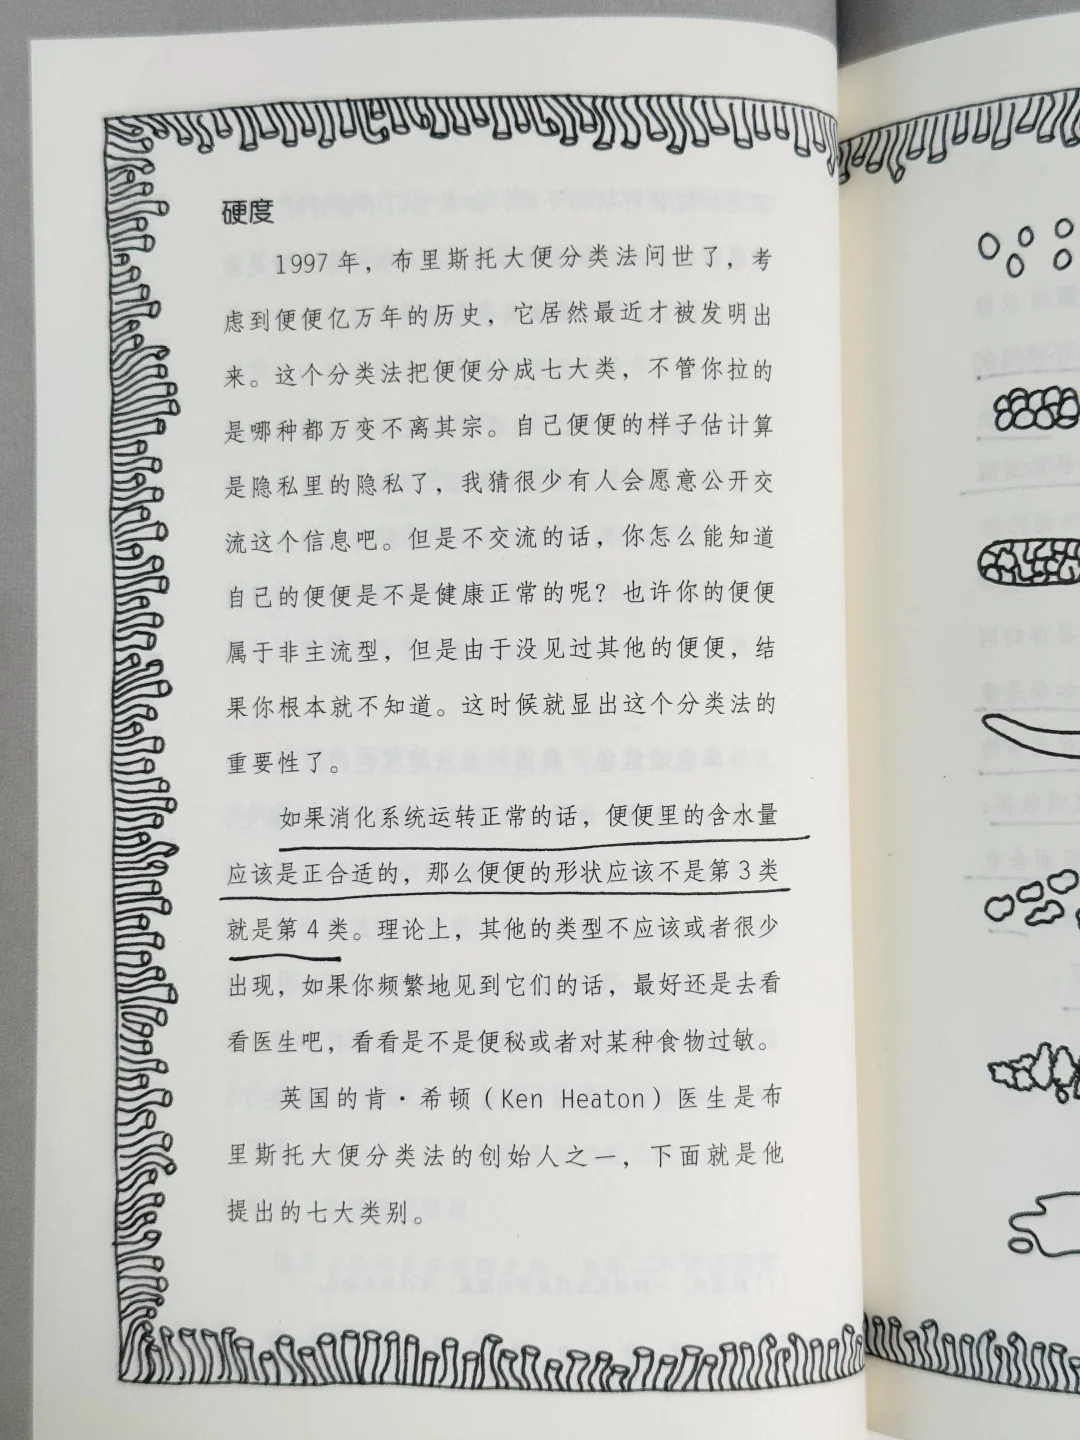 硬度
1997年，布里斯托大便分类法问世了，考
虑到便便亿万年的历史，它居然最近才被发明出
来。这个分类法把便便分成七大类，不管你拉的
是哪种都万变不离其宗。自己便便的样子估计算
是隐私里的隐私了，我猜很少有人会愿意公开交
流这个信息吧。但是不交流的话，你怎么能知道
自己的便便是不是健康正常的呢？也许你的便便
属于非主流型，但是由于没见过其他的便便，结
果你根本就不知道。这时候就显出这个分类法的
重要性了。
如果消化系统运转正常的话，便便里的含水量
应该是正合适的，那么便便的形状应该不是第3类
就是第4类。理论上，其他的类型不应该或者很少
出现，如果你频繁地见到它们的话，最好还是去看
看医生吧，看看是不是便秘或者对某种食物过敏。
英国的肯·希顿（Ken Heaton）医生是布
里斯托大便分类法的创始人之一，下面就是他
提出的七大类别。